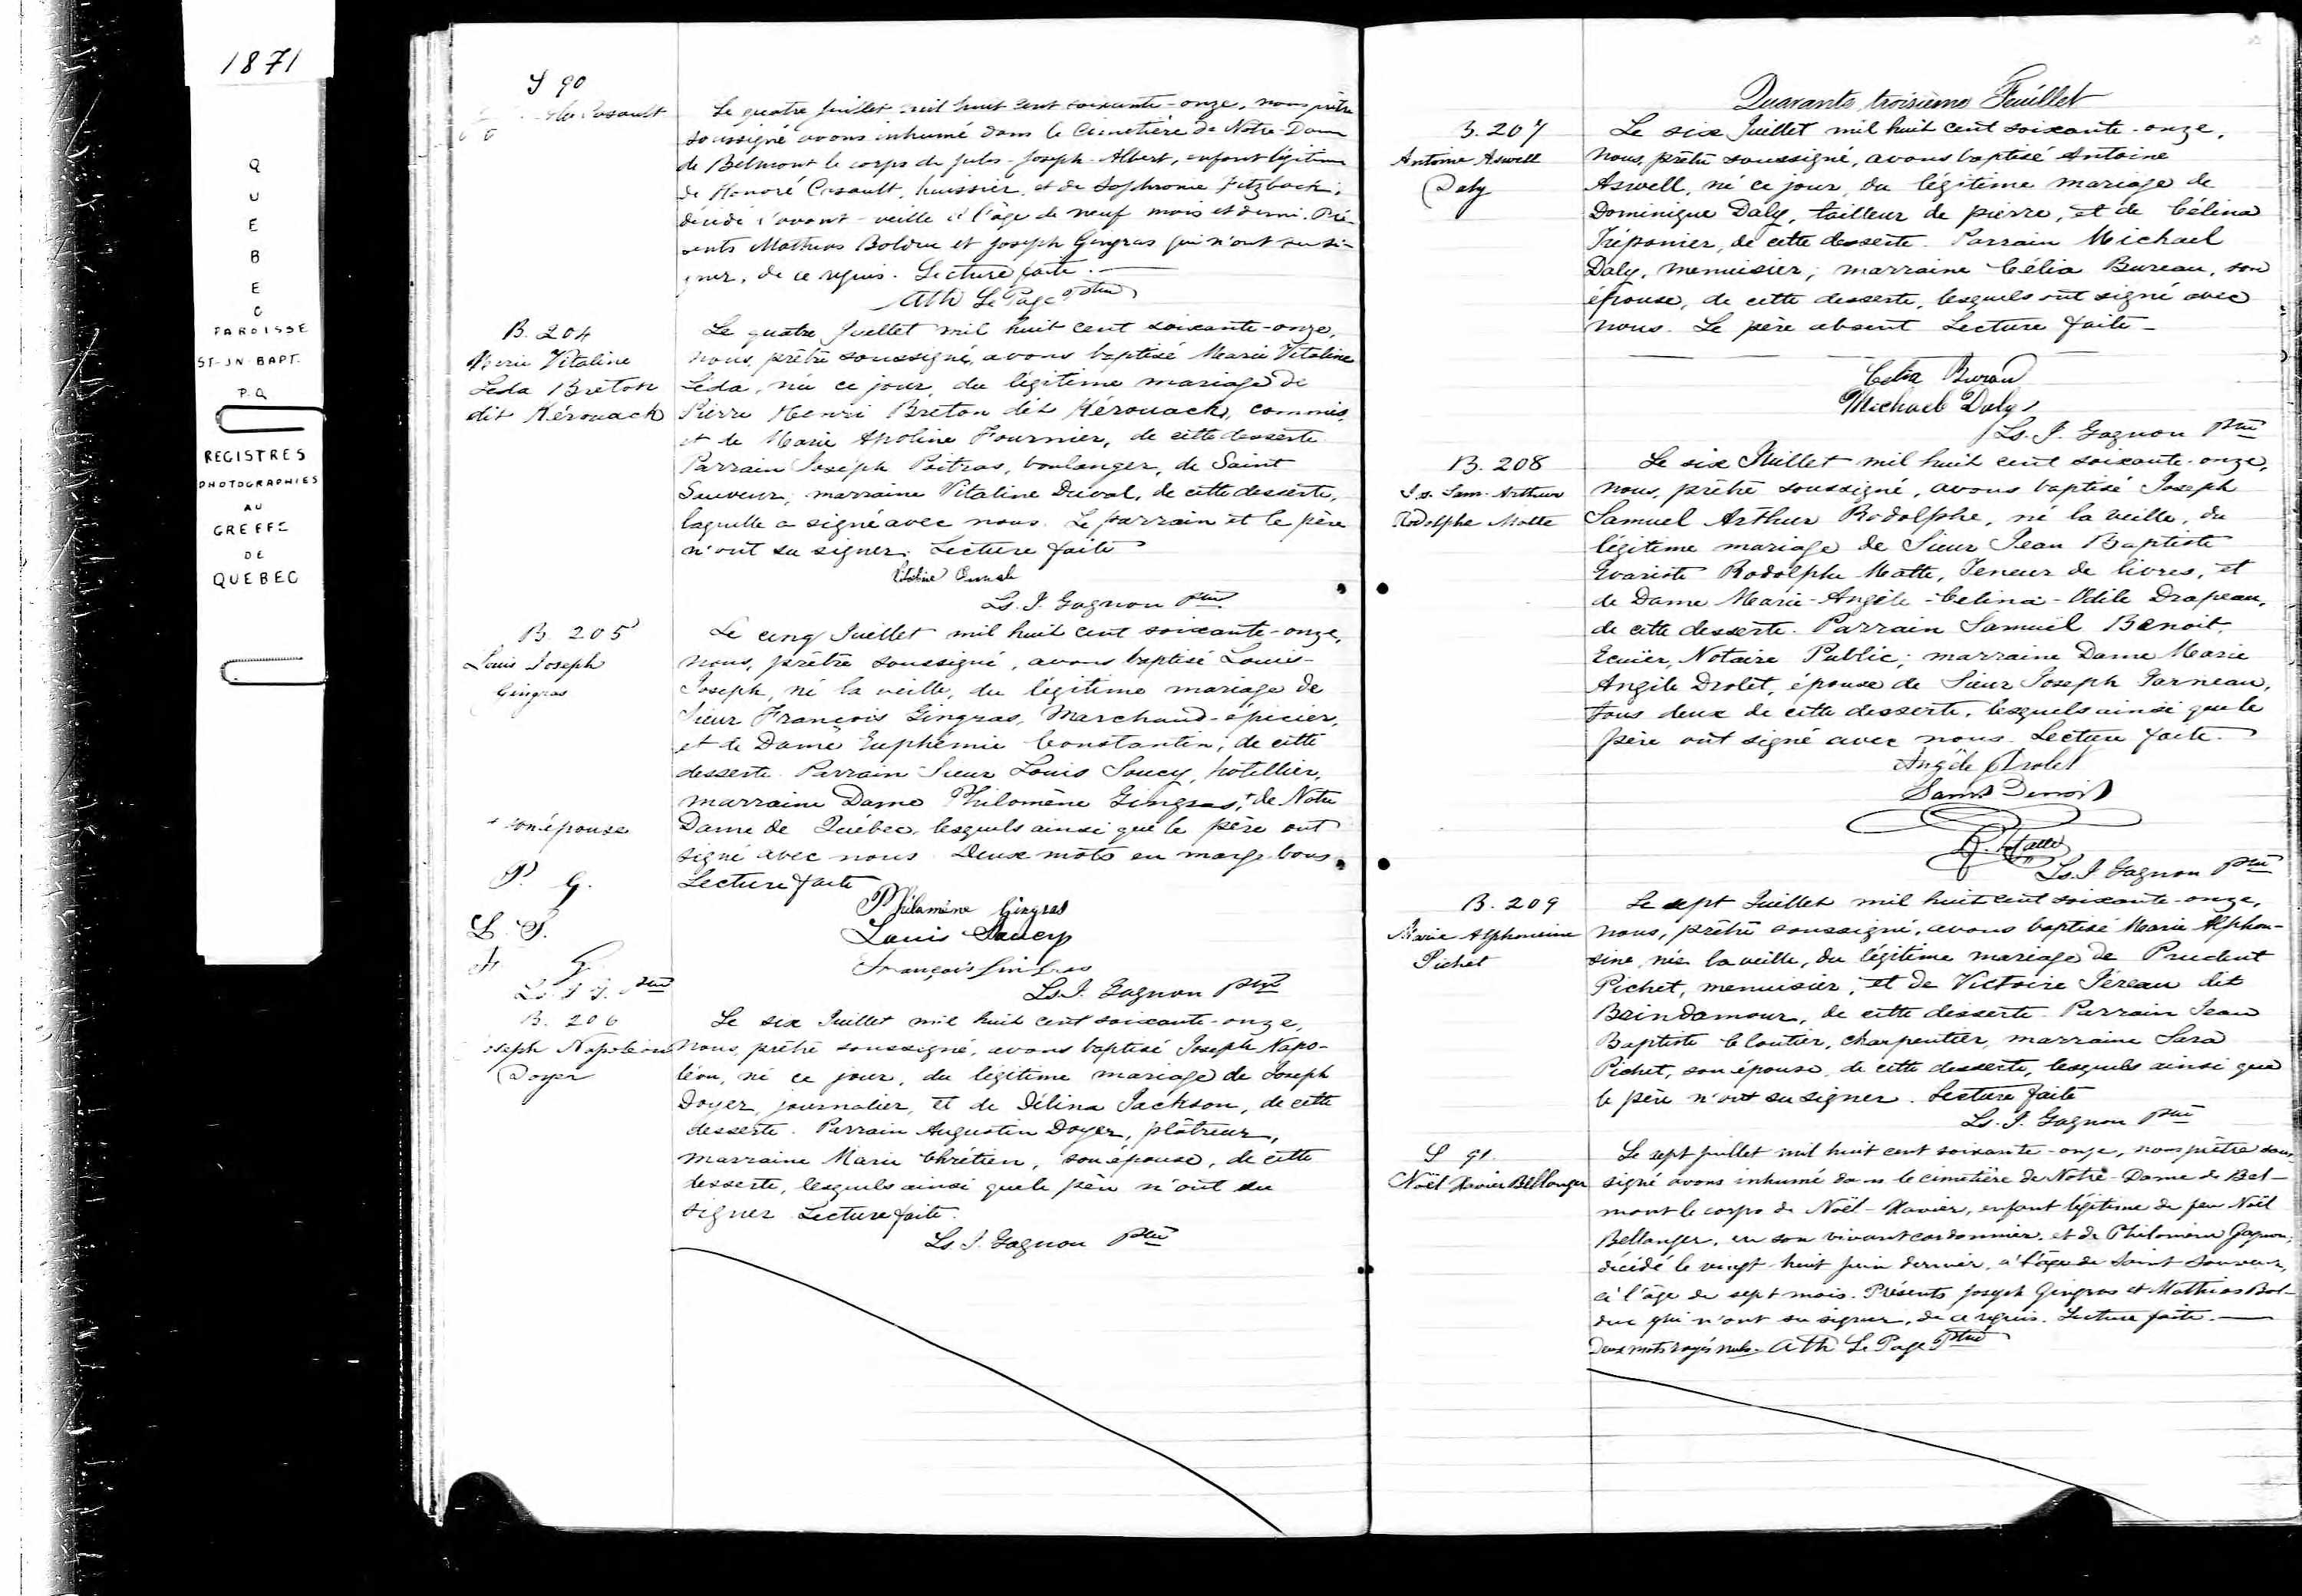 1871
Q
U
E
B
E
C
PAROISSE
ST-JN BAPT.
P.Q
REGISTRES
PHOTOGRAPHIES
AU
GREFFE
DE
QUEBEC
S 90
Casault
Le quatre Juillet mil huit cent soixante-onze, nous prêtre
soussigné avons inhumé dans le Cimetière de Notre-Dame
de Belmont le corps de Jules-Joseph-Albert, enfant légitime
de Honoré Casault, huissier, et de Sophronie Fitzback,
décédé l'avant-veille à l'âge de neuf mois et demi. Pré-
sents Mathias Bolduc et Joseph Gingras qui n'ont su si-
gner, de ce requis. Lecture faite.
Ath Le Page Ptre
B. 204
Marie Vitaline
Leda Breton
dit Kérouack
Le quatre Juillet mil huit cent soixante-onze,
nous, prêtre soussigné, avons baptisé Marie Vitaline
Léda, née ce jour, du légitime mariage de
Pierre Henri Breton dit Kérouack, commis,
et de Marie Apoline Fournier, de cette desserte
Parrain Joseph Poitras, boulanger, de Saint
Sauveur; marraine Vitaline Duval, de cette desserte,
laquelle a signé avec nous. Le parrain et le père
n'ont su signer. Lecture faite
Vitaline Duval
Ls. J. Gagnon Ptre
B. 205
Louis Joseph
Gingras
Le cinq Juillet mil huit cent soixante-onze,
nous, prêtre soussigné, avons baptisé Louis-
Joseph, né la veille, du légitime mariage de
Sieur François Gingras, Marchand-épicier,
et de Dame Euphémie Constantin, de cette
desserte. Parrain Sieur Louis Saucy, hôtellier,
marraine Dame Philomène Gingras,+ de Notre
+ son épouse
Dame de Québec, lesquels ainsi que le père ont
signé avec nous. Deux mots en marge bons.
Lecture faite
P. G.
L. S.
F G
Ls. J. G. Ptre
Philomène Gingras
Louis Saucy
François Gingras
Ls. J. Gagnon Ptre
B. 206
Joseph Napoléon
Doyer
Le six Juillet mil huit cent soixante-onze,
nous, prêtre soussigné, avons baptisé Joseph Napo-
léon, né ce jour, du légitime mariage de Joseph
Doyer, journalier, et de Délina Jackson, de cette
desserte. Parrain Augustin Doyer, plâtreur,
marraine Marie Chrétien, son épouse, de cette
desserte, lesquels ainsi que le père n'ont su
signer Lecture faite.
Ls. J. Gagnon Ptre
Quarante troisième Feuillet
B. 207
Antoine Aswell
Daly
Le six Juillet mil huit cent soixante-onze,
nous, prêtre soussigné, avons baptisé Antoine
Aswell, né ce jour, du légitime mariage de
Dominique Daly, tailleur de pierre, et de Célina
Trépanier, de cette desserte. Parrain Michael
Daly, menuisier, marraine Célia Bureau, son
épouse, de cette desserte, lesquels ont signé avec
nous. Le père absent Lecture faite
Celia Bureau
Michael Daly
Ls. J. Gagnon Ptre
B. 208
Jos. Sam. Arthur
Rodolphe Matte
Le six Juillet mil huit cent soixante-onze,
nous, prêtre soussigné, avons baptisé Joseph
Samuel Arthur Rodolphe, né la veille, du
légitime mariage de Sieur Jean Baptiste
Evariste Rodolphe Matte, Teneur de livres, et
de Dame Marie-Angèle-Celina-Odile Drapeau,
de cette desserte. Parrain Samuel Benoit,
Ecuïer, Notaire Public; marraine Dame Marie
Angèle Drolet, épouse de Sieur Joseph Garneau,
tous deux de cette desserte, lesquels ainsi que le
père ont signé avec nous. Lecture faite.
Angèle Drolet
Saml Benoit
R. Matte
Ls. J. Gagnon Ptre
B. 209
Marie Alphonsine
Pichet
Le sept Juillet mil huit cent soixante-onze,
nous, prêtre soussigné, avons baptisé Marie Alphon-
sine, née la veille, du légitime mariage de Prudent
Pichet, menuisier, et de Victoire Téreau dit
Brindamour, de cette desserte. Parrain Jean
Baptiste Cloutier, charpentier, marraine Sara
Pichet, son épouse, de cette desserte, lesquels ainsi que
le père n'ont su signer. Lecture faite
Ls. J. Gagnon Ptre
S 91.
Noël Xavier Bellanger
Le sept juillet mil huit cent soixante-onze, nous prêtre sous-
signé avons inhumé dans le cimetière de Notre-Dame de Bel-
mont le corps de Noël-Xavier, enfant légitime de feu Noël
Bellanger, en son vivant cordonnier, et de Philomène Gagnon,
décédé le vingt-huit juin dernier, à l'âge de Saint Sauveur,
à l'âge de sept mois. Présents Joseph Gingras et Mathias Bol-
duc qui n'ont su signer, de ce requis. Lecture faite.
Deux mots rayés nuls. Ath Le Page Ptre